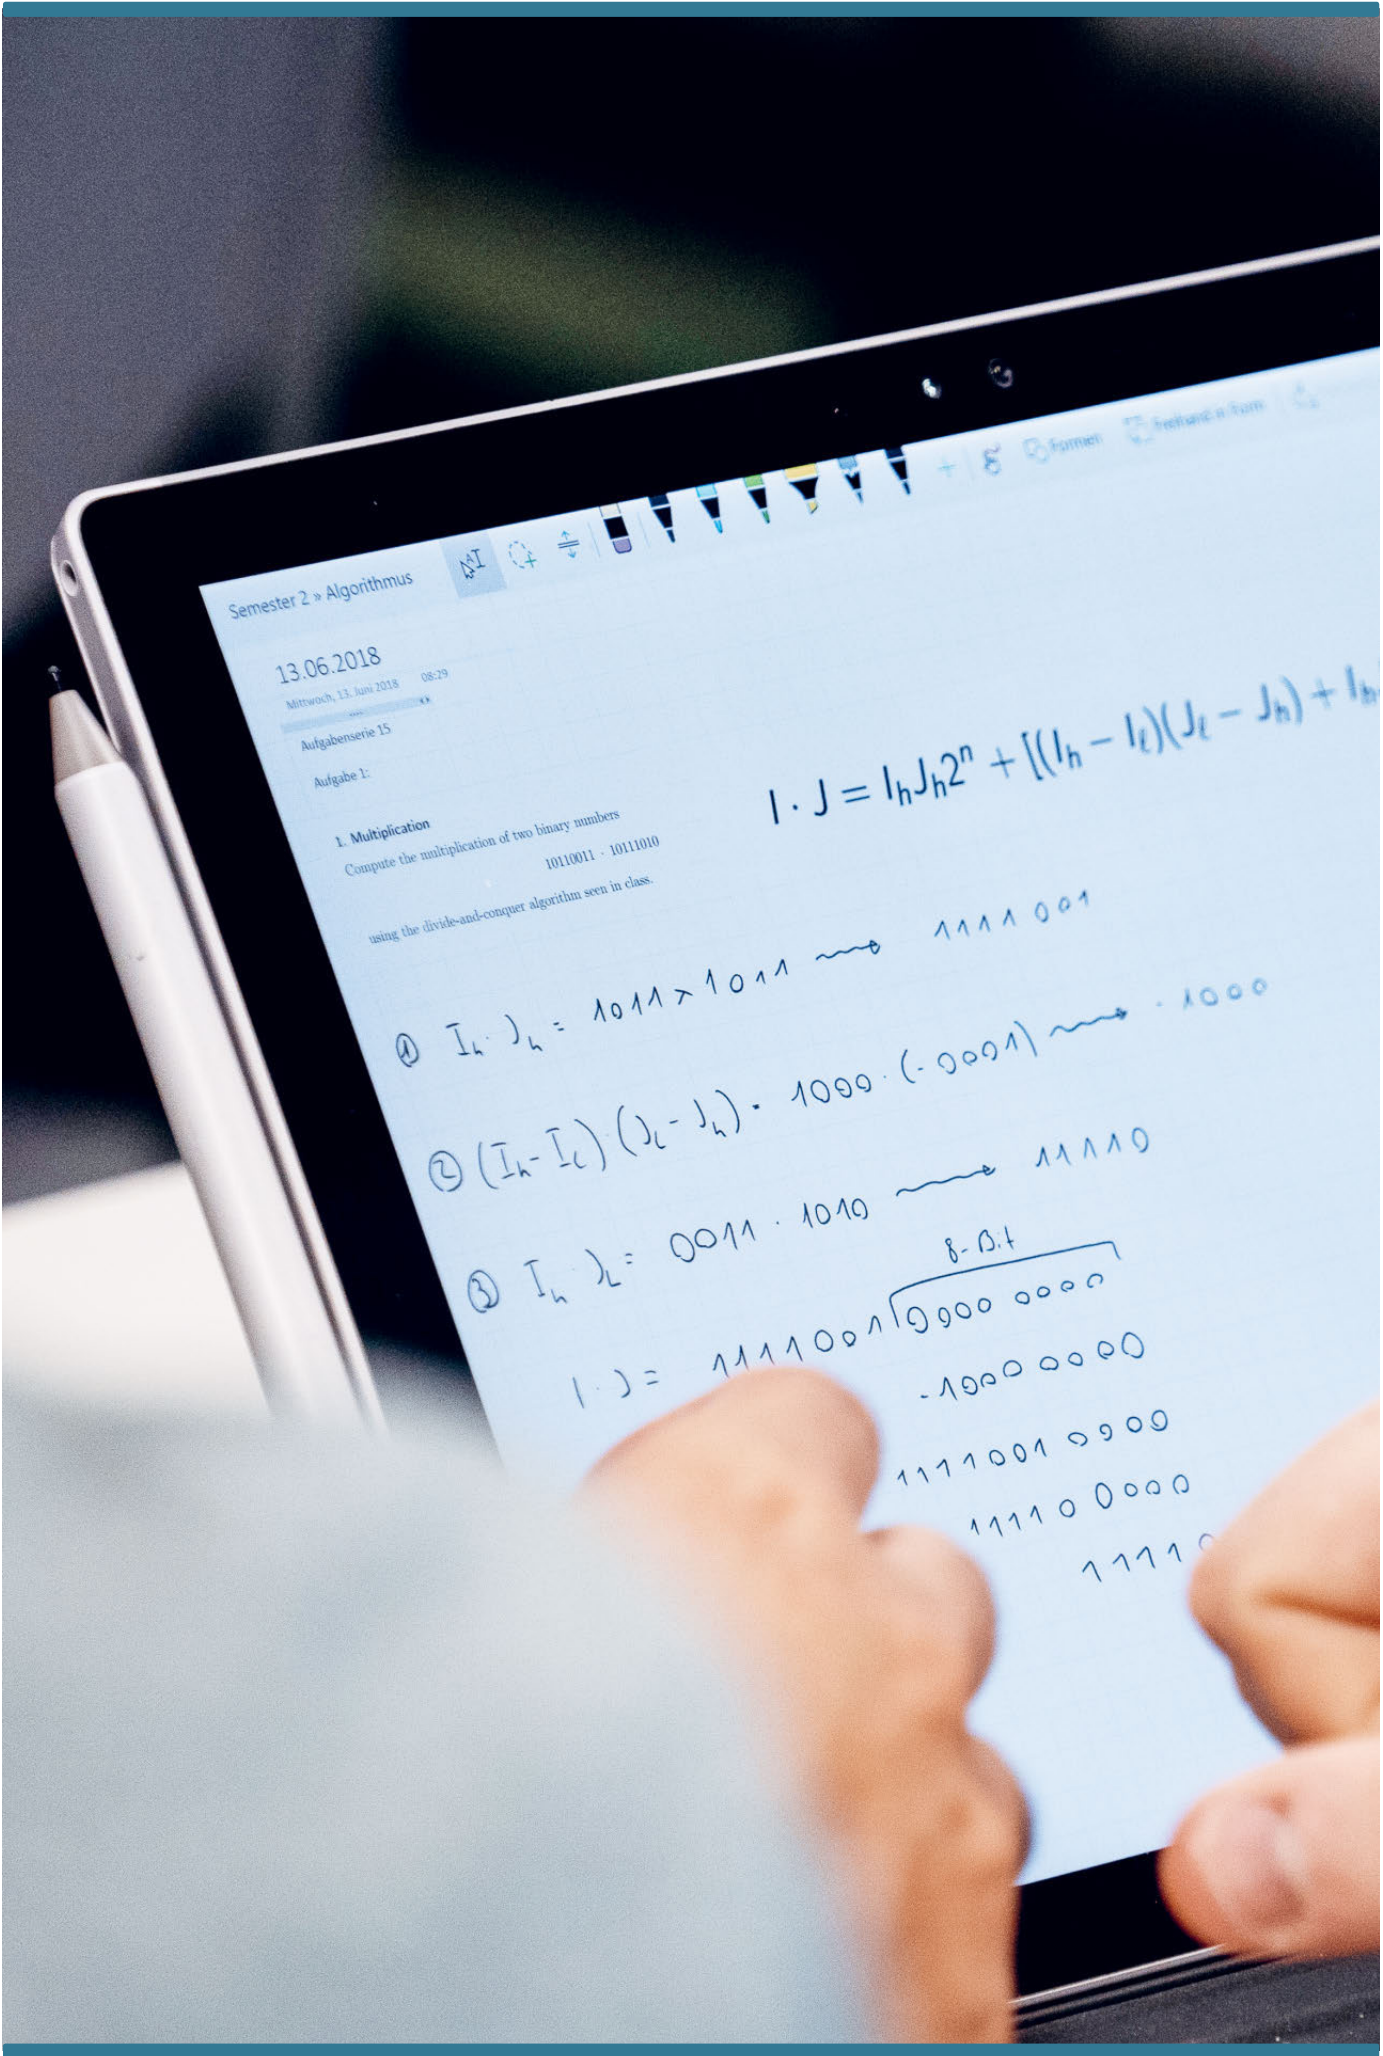 Formen
Freihand in Form
Semester 2 » Algorithmus
13.06.2018
Mittwoch, 13. Juni 2018 08:29
Aufgabenserie 15
Aufgabe 1:
I · J = IₕJₕ2ⁿ + [(Iₕ − Iₗ)(Jₗ − Jₕ) + Iₕ
1. Multiplication
Compute the multiplication of two binary numbers
10110011 · 10111010
using the divide-and-conquer algorithm seen in class.
① Iₕ · Jₕ = 1011 × 1011 → 1111001
② (Iₕ - Iₗ) (Jₗ - Jₕ) = 1000 · (-0001) → -1000
③ Iₕ · J_L = 0011 · 1010 → 11110
8-Bit
I · J = 1111001 0000 0000
-1000 0000
1111001 0000
11110 0000
1111